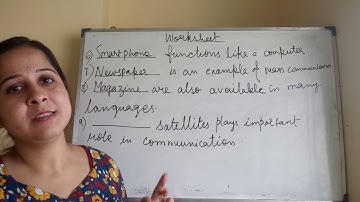 Worksheet
6) Smartphone functions like a computer
7) Newspaper is an example of mass communication
8) Magazine are also available in many
languages.
9) ________ satellites plays important
role in communication.